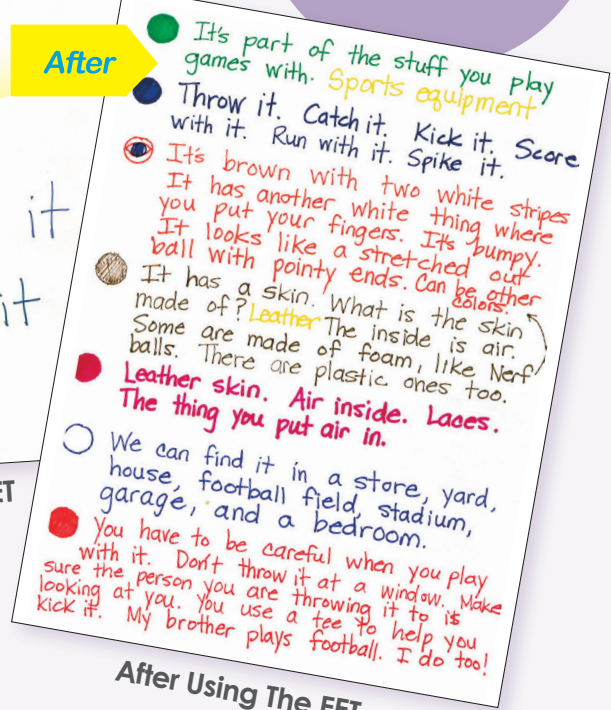 After
It's part of the stuff you play
games with. Sports equipment
Throw it. Catch it. Kick it. Score
with it. Run with it. Spike it.
It's brown with two white stripes
It has another white thing where
you put your fingers. It's bumpy.
It looks like a stretched out
ball with pointy ends. Can be other
colors.
It has a skin. What is the skin
made of? Leather The inside is air.
Some are made of foam, like Nerf
balls. There are plastic ones too.
Leather skin. Air inside. Laces.
The thing you put air in.
We can find it in a store, yard,
house, football field, stadium,
garage, and a bedroom.
You have to be careful when you play
with it. Don't throw it at a window. Make
sure the person you are throwing it to is
looking at you. You use a tee to help you
kick it. My brother plays football. I do too!
After Using The EET
it
it
ET